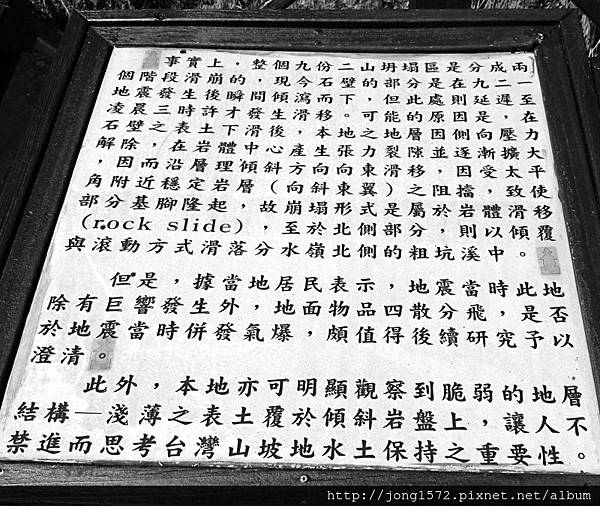 事實上，整個九份二山坍塌區是分成兩
個階段滑崩的，現今石壁的部分是在九二一
地震發生後瞬間傾瀉而下，但此處則延遲至
凌晨三時許才發生滑移。可能的原因是，在
石壁之表土下滑後，本地之地層因側向壓力
解除，在岩體中心產生張力裂隙並逐漸擴大
，因而沿層理傾斜方向向東滑移，因受太平
角附近穩定岩層（向斜東翼）之阻擋，致使
部分基腳隆起，故崩塌形式是屬於岩體滑移
(rock slide)，至於北側部分，則以傾覆
與滾動方式滑落分水嶺北側的粗坑溪中。
但是，據當地居民表示，地震當時此地
除有巨響發生外，地面物品四散分飛，是否
於地震當時併發氣爆，頗值得後續研究予以
澄清。
此外，本地亦可明顯觀察到脆弱的地層
結構—淺薄之表土覆於傾斜岩盤上，讓人不
禁進而思考台灣山坡地水土保持之重要性。
http://jong1572.pixnet.net/album